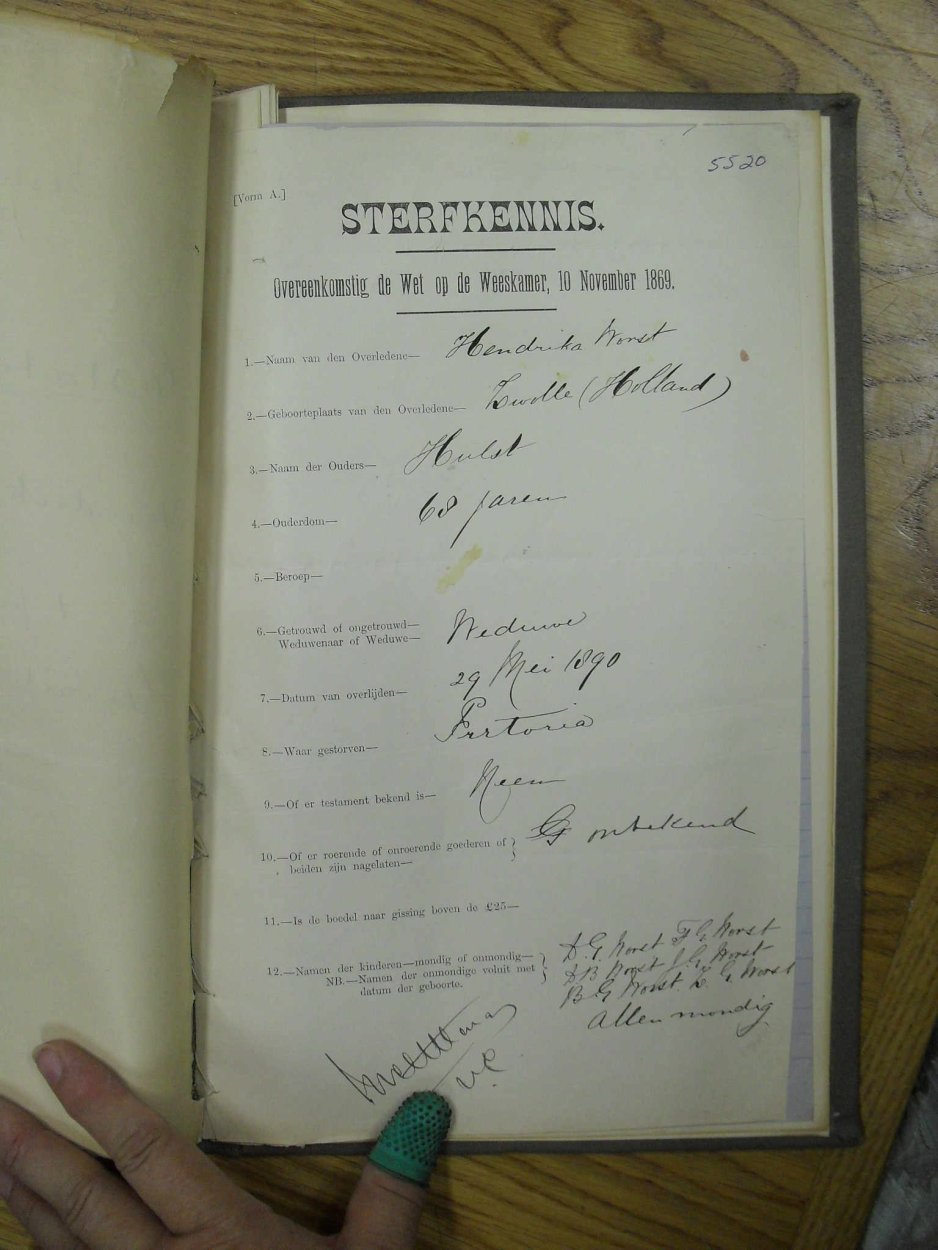 5520
[Vorm A.]
STERFKENNIS.
Overeenkomstig de Wet op de Weeskamer, 10 November 1869.
1.—Naam van den Overledene— Hendrika Worst
2.—Geboorteplaats van den Overledene— Zwolle (Holland)
3.—Naam der Ouders— Hulst
4.—Ouderdom— 68 jaren
5.—Beroep—
6.—Getrouwd of ongetrouwd—
Weduwenaar of Weduwe— Weduwe
7.—Datum van overlijden— 29 Mei 1890
8.—Waar gestorven— Pretoria
9.—Of er testament bekend is— Neen
10.—Of er roerende of onroerende goederen of } onbekend
beiden zijn nagelaten—
11.—Is de boedel naar gissing boven de £25—
12.—Namen der kinderen—mondig of onmondig— } D. G. Worst F. G. Worst
NB.—Namen der onmondige voluit met D B Worst J. G. Worst
datum der geboorte. B G Worst Z. G. Worst
allen mondig